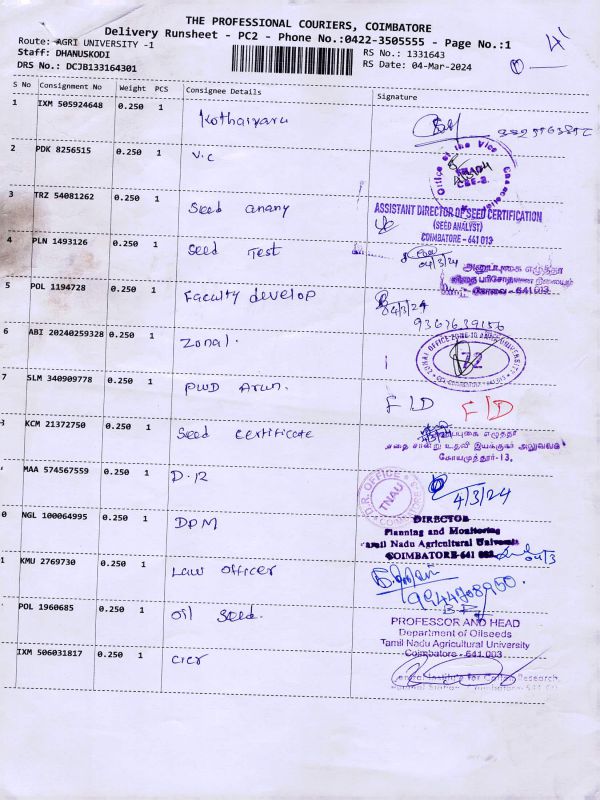 THE PROFESSIONAL COURIERS, COIMBATORE
Delivery Runsheet - PC2 - Phone No.:0422-3505555 - Page No.:1
Route: AGRI UNIVERSITY -1
Staff: DHANUSKODI
DRS No.: DCJB133164301
RS No.: 1331643
RS Date: 04-Mar-2024
S No Consignment No Weight PCS Consignee Details Signature
1 IXM 505924648 0.250 1 Kothaiyaru
2 PDK 8256515 0.250 1 V.C
Office of the Vice
3 TRZ 54081262 0.250 1 Seed anany
ASSISTANT DIRECTOR OF SEED CERTIFICATION
(SEED ANALYST)
COIMBATORE - 641 013
4 PLN 1493126 0.250 1 Seed Test
04/3/24
அனுப்புகை எழுத்தர்
5 POL 1194728 0.250 1 Faculty develop
04/3/24
6 ABI 20240259328 0.250 1 Zonal.
22
7 SLM 340909778 0.250 1 PWD Arun.
F/D F/D
KCM 21372750 0.250 1 Seed Certificate
கோயமுத்தூர்-13.
MAA 574567559 0.250 1 D.R
D.R. OFFICE
TNAU
COIMBATORE
4/3/24
0 NGL 100064995 0.250 1 DPM
DIRECTOR
Planning and Monitoring
Tamil Nadu Agricultural University
COIMBATORE-641 003
04/3
1 KMU 2769730 0.250 1 Law officer
9944908950.
POL 1960685 0.250 1 Oil Seed.
PROFESSOR AND HEAD
Department of Oilseeds
Tamil Nadu Agricultural University
Coimbatore - 641 003
IXM 506031817 0.250 1 CICR
Central Institute for Cotton Research,